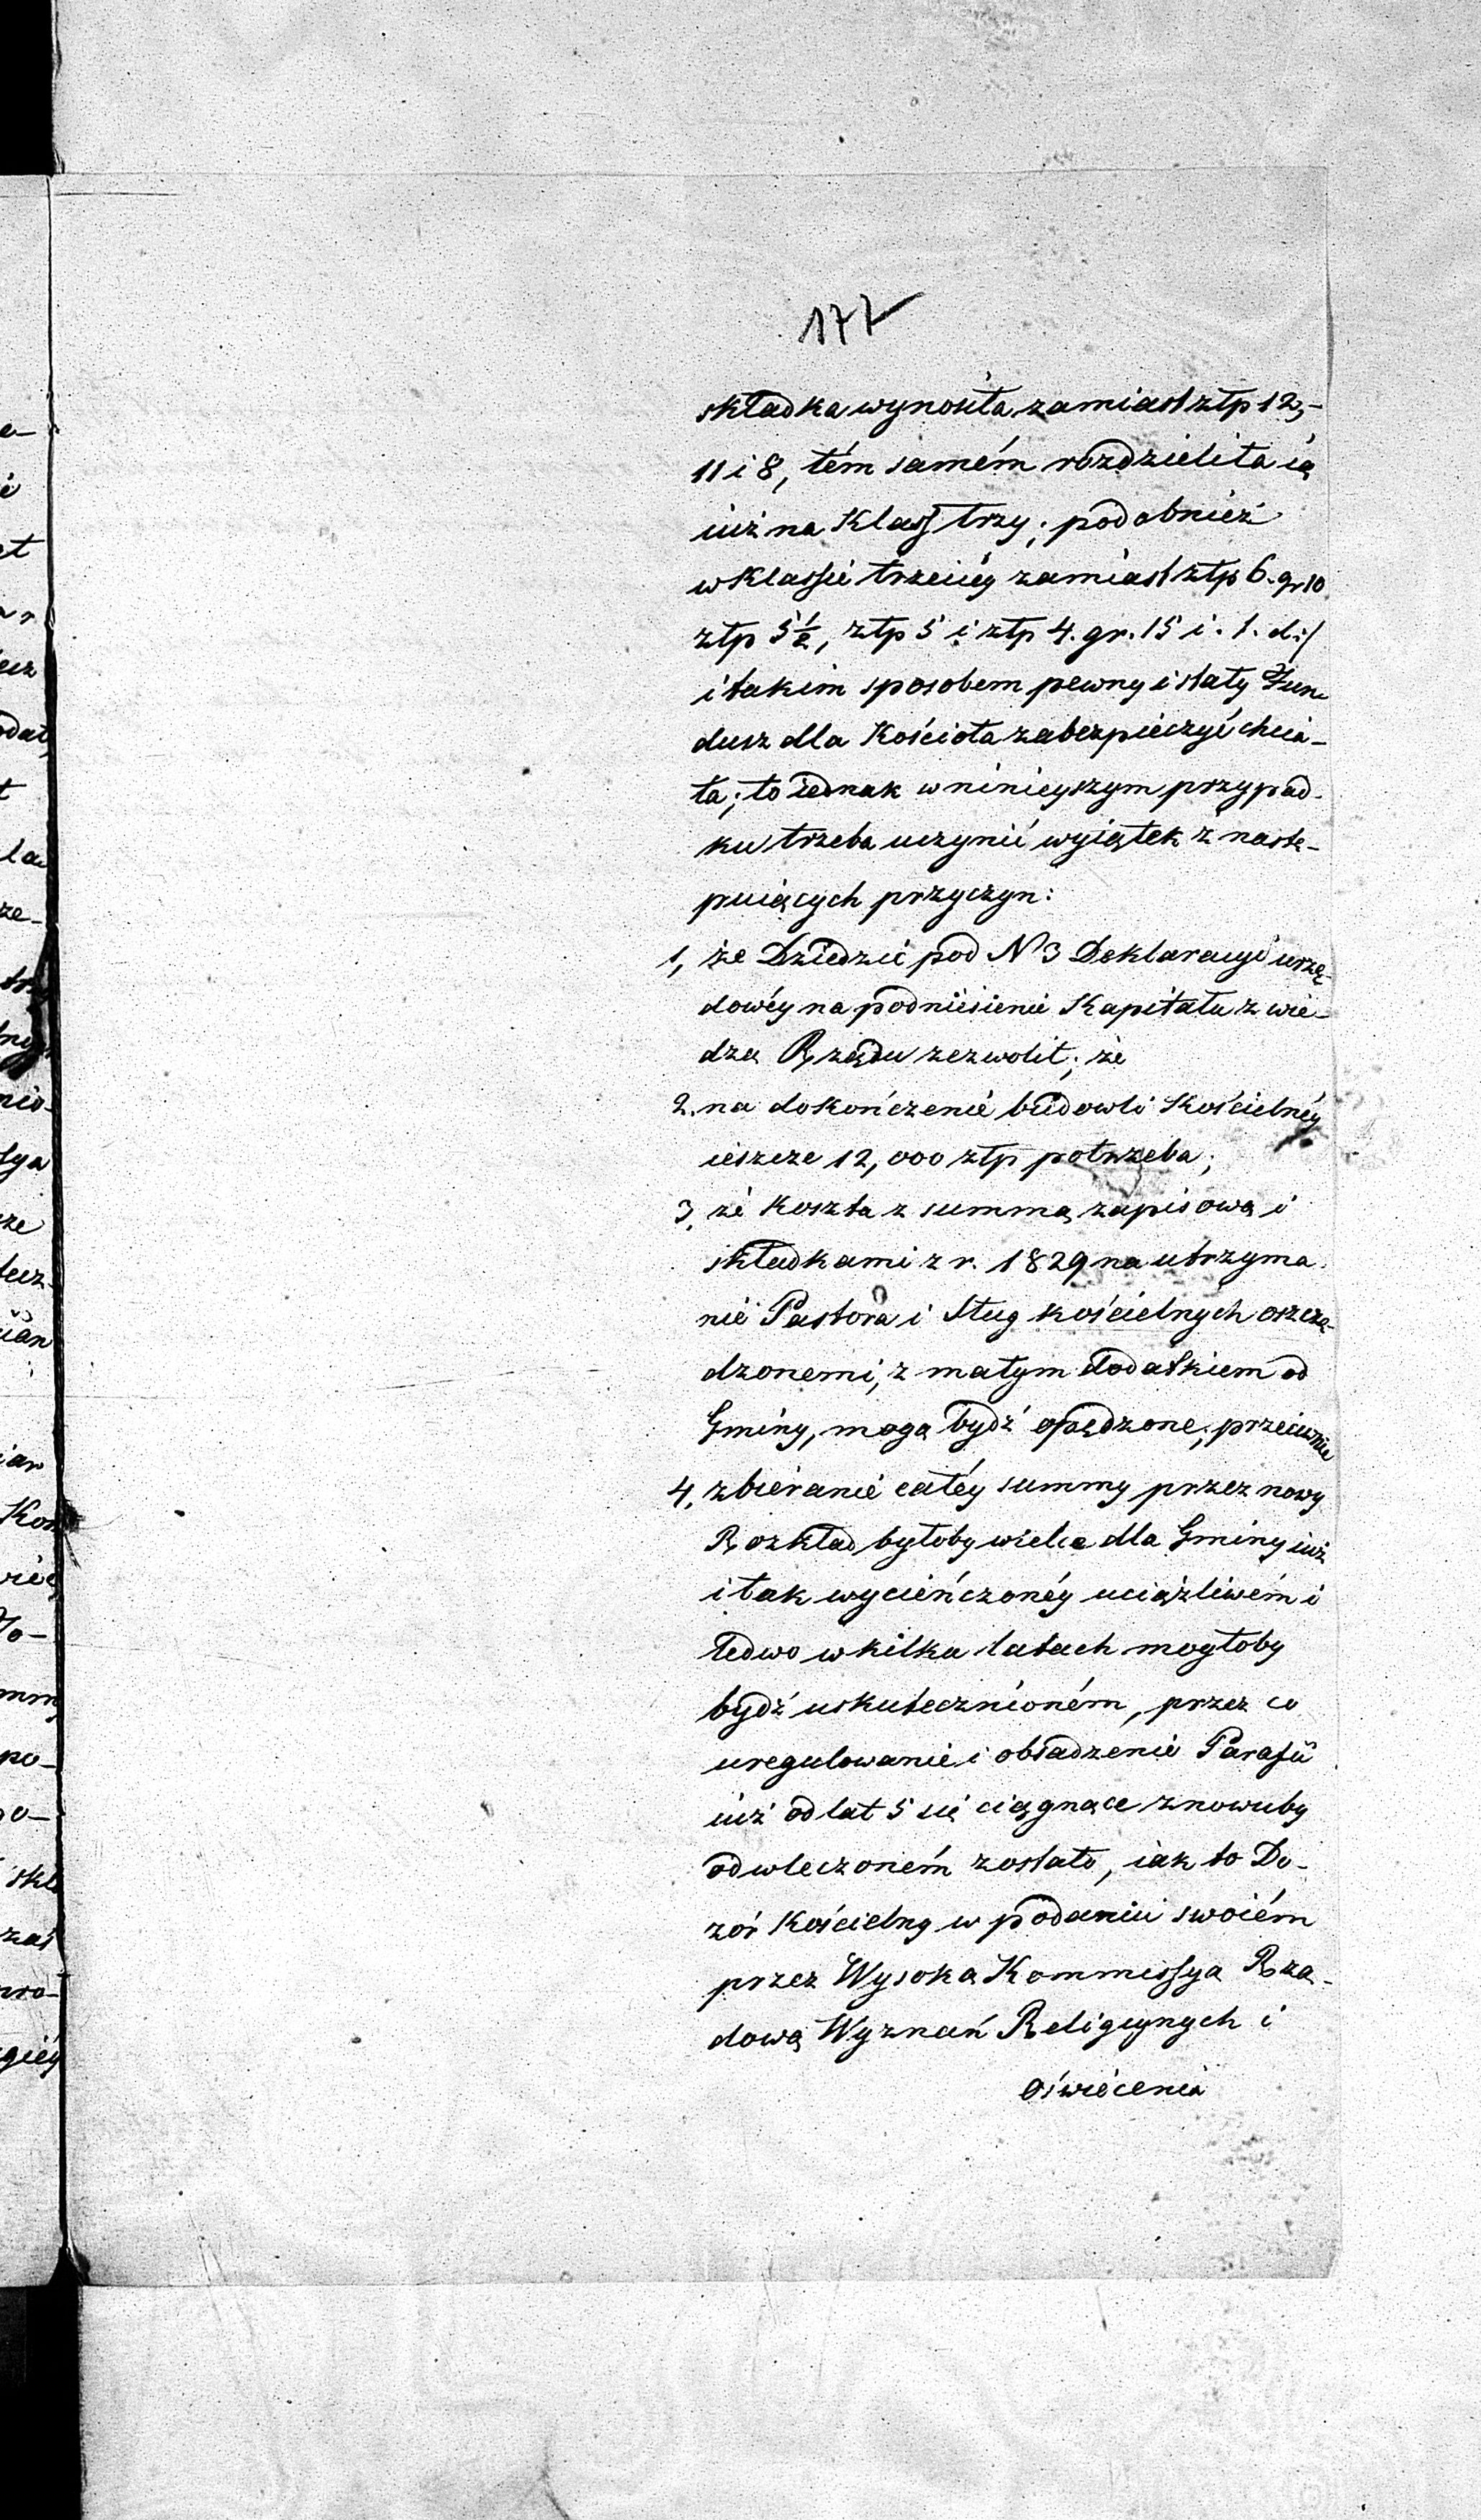 177
składka wynosiła zamiast złp 12,-
11 i 8, tém samém rozdzieliła ią
iuż na Klass trzy; podobnież
w Klassie trzeciéy zamiast złp 6. gr 10
złp 5½, złp 5 i złp 4. gr. 15 i. t. d:/
i takim sposobem pewny i stały Fun-
dusz dla Kościoła zabezpieczyć chcia-
ła; to iednak w ninieyszym przypad-
ku trzeba uczynić wyiątek z nastę-
puiących przyczyn:
1, że Dziedzic pod N 3 Deklaracyi urzę-
dowéy na podniesienie Kapitału z wie-
dzą Rządu zezwolił; że
2. na dokończenie budowli Kościelnéy
ieszcze 12,000 złp potrzeba;
3, że koszta z summą zapisową i
składkami z r. 1829 na utrzyma-
nie Pastora i sług kościelnych oszczę-
dzonemi, z małym dodatkiem od
Gminy, mogą bydź opędzone; przeciwnie
4, zbieranie całéy summy przez nowy
Rozkład byłoby wielce dla Gminy iuż
i tak wycieńczonéy uciążliwém i
ledwo w kilku latach mogłoby
bydź uskutecznioném, przez co
uregulowanie i obsadzenie Parafii
iuż od lat 5 się ciągnące znowuby
odwleczoném zostało, iak to Do-
zór Kościelny w podaniu swoiém
przez Wysoką Kommissyą Rzą-
dową Wyznań Religiynych i
Oświecenia